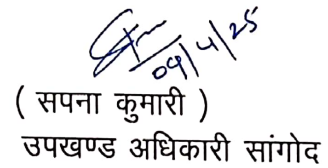 09/4/25
( सपना कुमारी )
उपखण्ड अधिकारी सांगोद